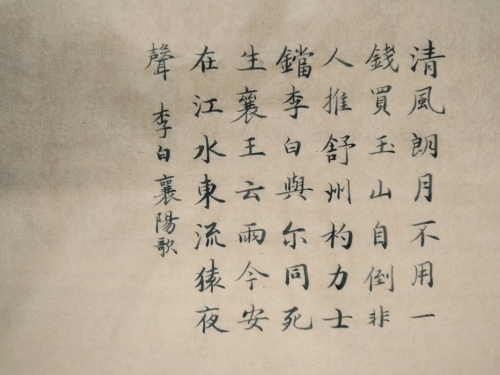 清風朗月不用一
錢買玉山自倒非
人推舒州杓力士
鐺李白與尓同死
生襄王云雨今安
在江水東流猿夜
聲 李白襄陽歌